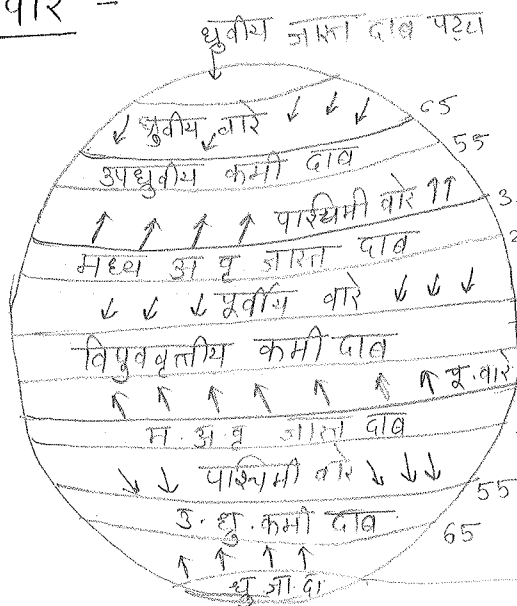 वारे -
ध्रुवीय जास्त दाब पट्टा
ध्रुवीय वारे
65
उपध्रुवीय कमी दाब
55
पश्चिमी वारे
3
मध्य अ वृ जास्त दाब
2
पूर्वीय वारे
विषुववृत्तीय कमी दाब
पू. वारे
म. अ. वृ जास्त दाब
पश्चिमी वारे
55
उ. ध्रु. कमी दाब
65
ध्रु जा. दा